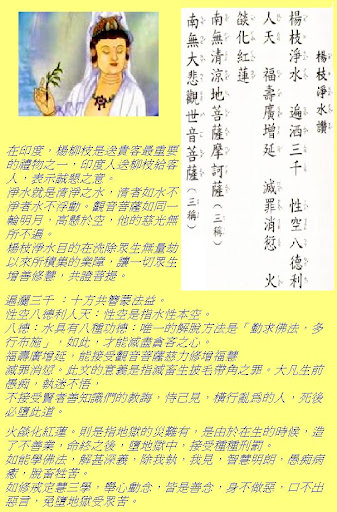 楊枝淨水讚
楊枝淨水　遍洒三千　性空八德利
人天　福壽廣增延　滅罪消愆　火
燄化紅蓮
南無清涼地菩薩摩訶薩（三稱）
南無大悲觀世音菩薩（三稱）
在印度，楊柳枝是送貴客最重要
的禮物之一，印度人送柳枝給客
人，表示誠懇之意。
淨水就是清淨之水，清者如水不
淨者水不浮動。觀音菩薩如同一
輪明月，高懸於空，他的慈光無
所不遍。
楊枝淨水目的在洗除眾生無量劫
以來所積集的業障，讓一切眾生
增善修慧，共證菩提。
遍灑三千：十方共嚐蒙法益。
性空八德利人天：性空是指水性本空。
八德：水具有八種功德：唯一的解脫方法是「勤求佛法，多
行布施」，如此，才能滅盡貪吝之心。
福壽廣增延，能接受觀音菩薩慈力修增福慧
滅罪消愆。此文的意義是指滅畜生披毛帶角之罪。大凡生前
愚痴，執迷不悟，
不接受賢者善知識們的教誨，恃己見，橫行亂為的人，死後
必墮此道。
火燄化紅蓮。則是指地獄的災難有，是由於在生的時候，造
了不善業，命終之後，墮地獄中，接受種種刑罰。
如能學佛法，解甚深義，除我執，我見，智慧明朗，愚痴病
癒，脫畜牲苦。
如修戒定慧三學，舉心動念，皆是善念，身不做惡，口不出
惡言，免墮地獄受眾苦。